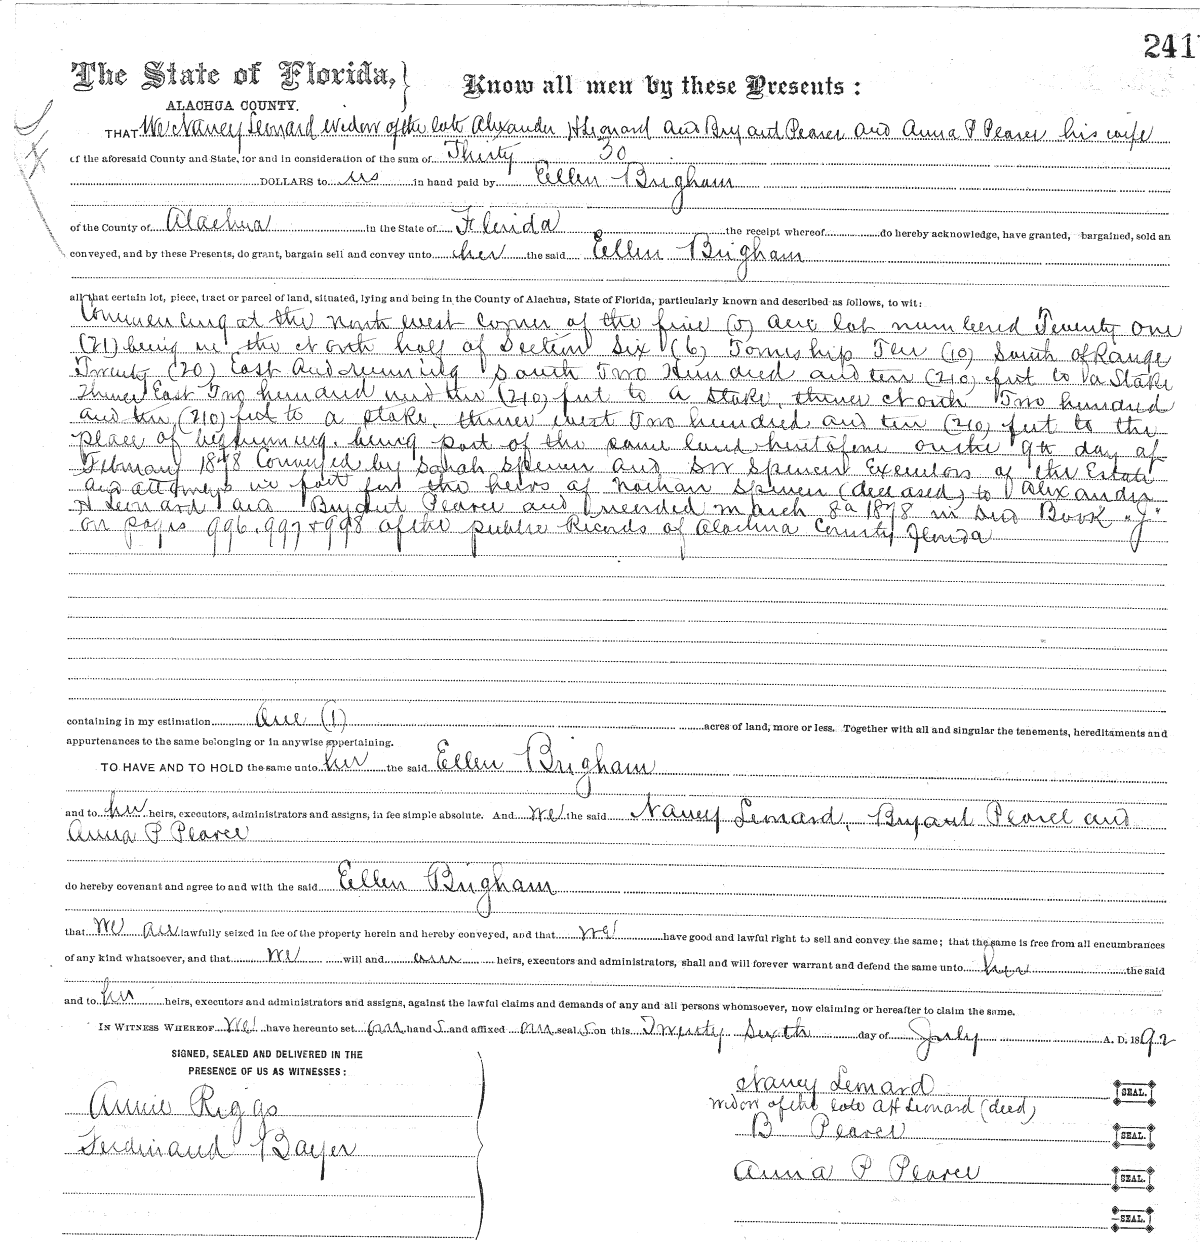 241
The State of Florida, Know all men by these Presents:
ALACHUA COUNTY.
THAT We Nancy Leonard widow of the late Alexander H Leonard and Bryant Pearce and Anna P Pearce his wife
of the aforesaid County and State, for and in consideration of the sum of Thirty 30
DOLLARS to us in hand paid by Ellen Brigham
of the County of Alachua in the State of Florida the receipt whereof do hereby acknowledge, have granted, bargained, sold an
conveyed, and by these Presents, do grant, bargain sell and convey unto her the said Ellen Brigham
all that certain lot, piece, tract or parcel of land, situated, lying and being in the County of Alachua, State of Florida, particularly known and described as follows, to wit:
Commencing at the north west corner of the five (5) acre lot numbered Twenty one
(21) being in the North half of Section Six (6) Township Ten (10) South of Range
Twenty (20) East and running south Two Hundred and ten (210) feet to a Stake
thence East Two hundred and ten (210) feet to a stake, thence North Two hundred
and ten (210) feet to a stake, thence west Two hundred and ten (210) feet to the
place of beginning. being part of the same land heretofore on the 9th day of
February 1878 Conveyed by Sarah Spencer and Spencer Executors of the Estate
and attorneys in fact for the heirs of Nathan Spencer (deceased) to Alexander
H Leonard and Bryant Pearce and recorded march 8 1878 in Deed Book "J"
on pages 996. 997 & 998 of the public Records of Alachua County Florida
containing in my estimation One (1) acres of land, more or less. Together with all and singular the tenements, hereditaments and
appurtenances to the same belonging or in anywise appertaining.
TO HAVE AND TO HOLD the same unto her the said Ellen Brigham
and to her heirs, executors, administrators and assigns, in fee simple absolute. And we the said Nancy Leonard, Bryant Pearce and
Anna P Pearce
do hereby covenant and agree to and with the said Ellen Brigham
that we are lawfully seized in fee of the property herein and hereby conveyed, and that we have good and lawful right to sell and convey the same; that the same is free from all encumbrances
of any kind whatsoever, and that we will and our heirs, executors and administrators, shall and will forever warrant and defend the same unto her the said
and to her heirs, executors and administrators and assigns, against the lawful claims and demands of any and all persons whomsoever, now claiming or hereafter to claim the same.
IN WITNESS WHEREOF We have hereunto set our hands and affixed our seals on this Twenty Sixth day of July A. D. 1892
SIGNED, SEALED AND DELIVERED IN THE
PRESENCE OF US AS WITNESSES:
Annie Riggs
Ferdinand Bayer
Nancy Leonard SEAL.
widow of the late A H Leonard (deed)
B Pearce SEAL.
Anna P Pearce SEAL.
SEAL.